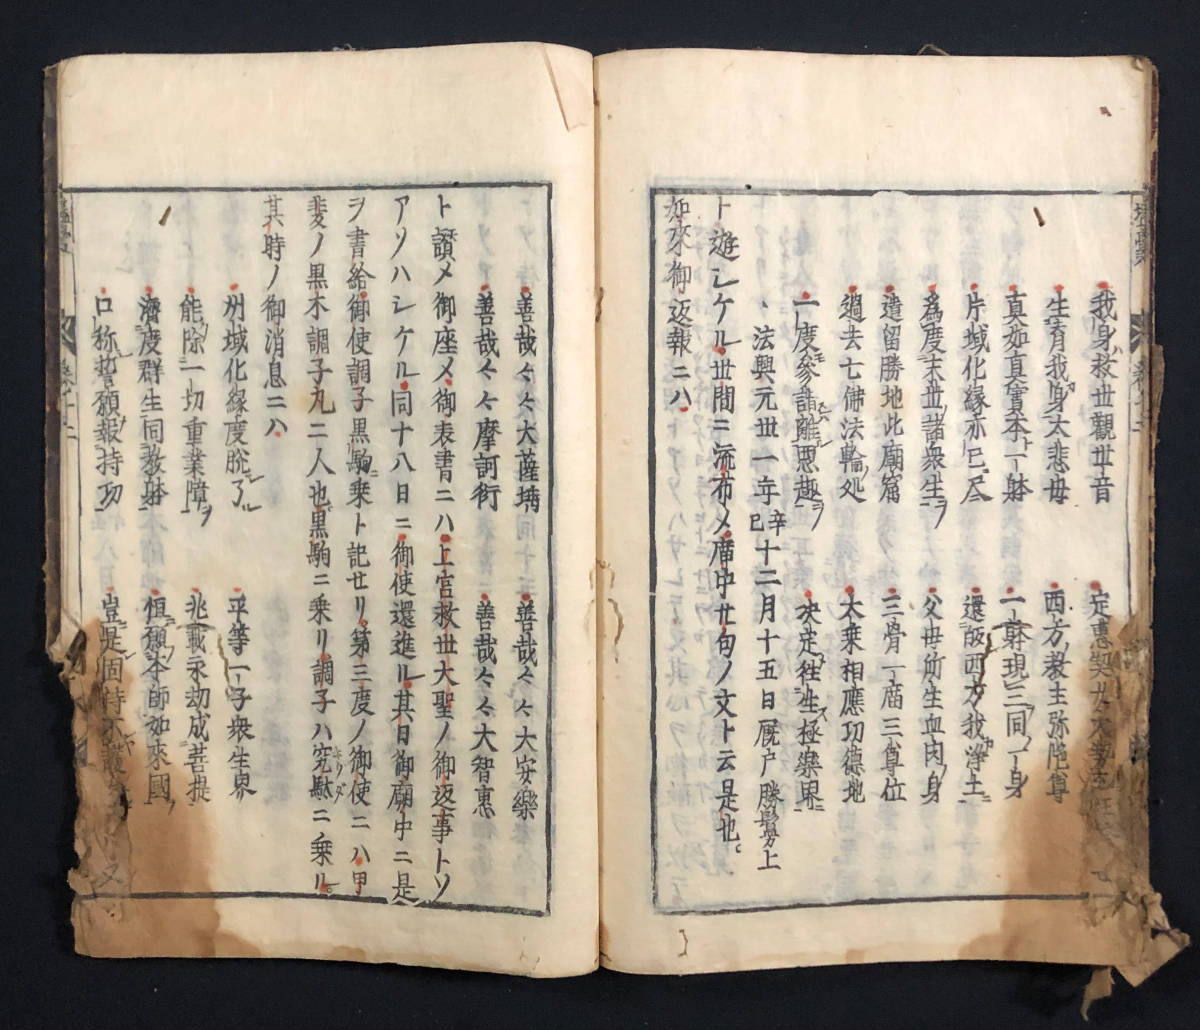 我身救丗觀丗音　定惠契女大勢
生育我身大悲母　西方教主弥陀尊
真如真實本一躰　一躰現三同一身
片域化縁亦已尽　還皈西方我淨土
爲度末丗諸衆生　父母所生血肉身
遺留勝地此廟窟　三骨一庿三尊位
過去七佛法輪处　大乗相應功德地
一度參詣離悪趣　决定往生極楽界
法興元丗一年辛巳十二月十五日厩戸勝鬘上
ト遊シケル丗間ニ流布乄庿中廿句ノ文ト云是也
如來御返報ニハ
善哉々々大薩埵　善哉々々大安樂
善哉々々摩訶衍　善哉々々大智惠
ト讃メ御座メ御表書ニハ上宮救丗大聖ノ御返事トソ
アソハシケル同十八日ニ御使還進ル其日御廟中ニ是
ヲ書給御使調子黒駒乗ト記セリ第三度ノ御使ニハ甲
斐ノ黒木調子丸二人也黒駒ニ乗リ調子ハ究駄ニ乗ル
キリダ
其時ノ御消息ニハ
州域化縁度脱了　平等一子衆生界
能除一切重業障　兆載永劫成菩提
濟度群生同教躰　恒願本師如來國
口称誓願報持功　豈是固特不